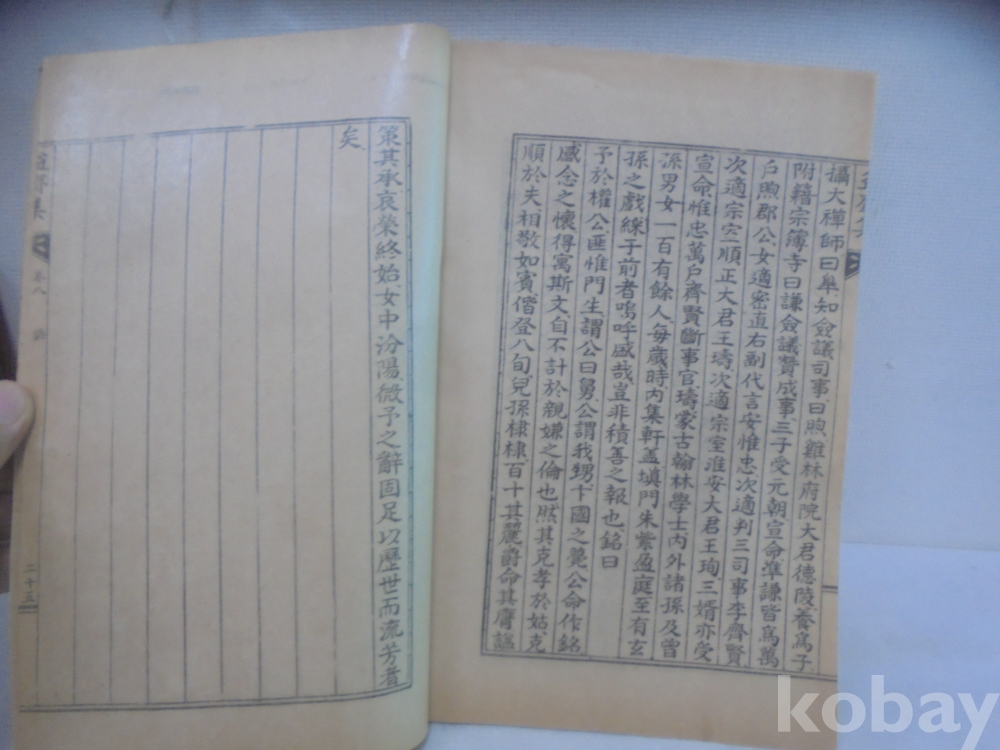 攝大禪師曰皐知僉議司事曰煦雞林府院大君德陵養爲子
附籍宗簿寺曰謙僉議贊成事三子受元朝宣命準謙皆爲萬
戶煦郡公女適密直右副代言安惟忠次適判三司事李齊賢
次適宗室順正大君王璹次適宗室淮安大君王珣三婿亦受
宣命惟忠萬戶齊賢斷事官璹蒙古翰林學士內外諸孫及曾
孫男女一百有餘人每歲時內集軒盖塡門朱紫盈庭至有玄
孫之戱綵于前者嗚呼盛哉豈非積善之報也銘曰
予於權公匪惟門生謂公曰舅公謂我甥卞國之薨公命作銘
感念之懷得寓斯文自不計於親嫌之倫也然其克孝於姑克
順於夫相敬如賓偕登八旬兒孫棣棣百十其麗爵命其膺謚
策其承哀榮終始女中汾陽微予之辭固足以歷世而流芳者
矣
卷八
二十五
kobay